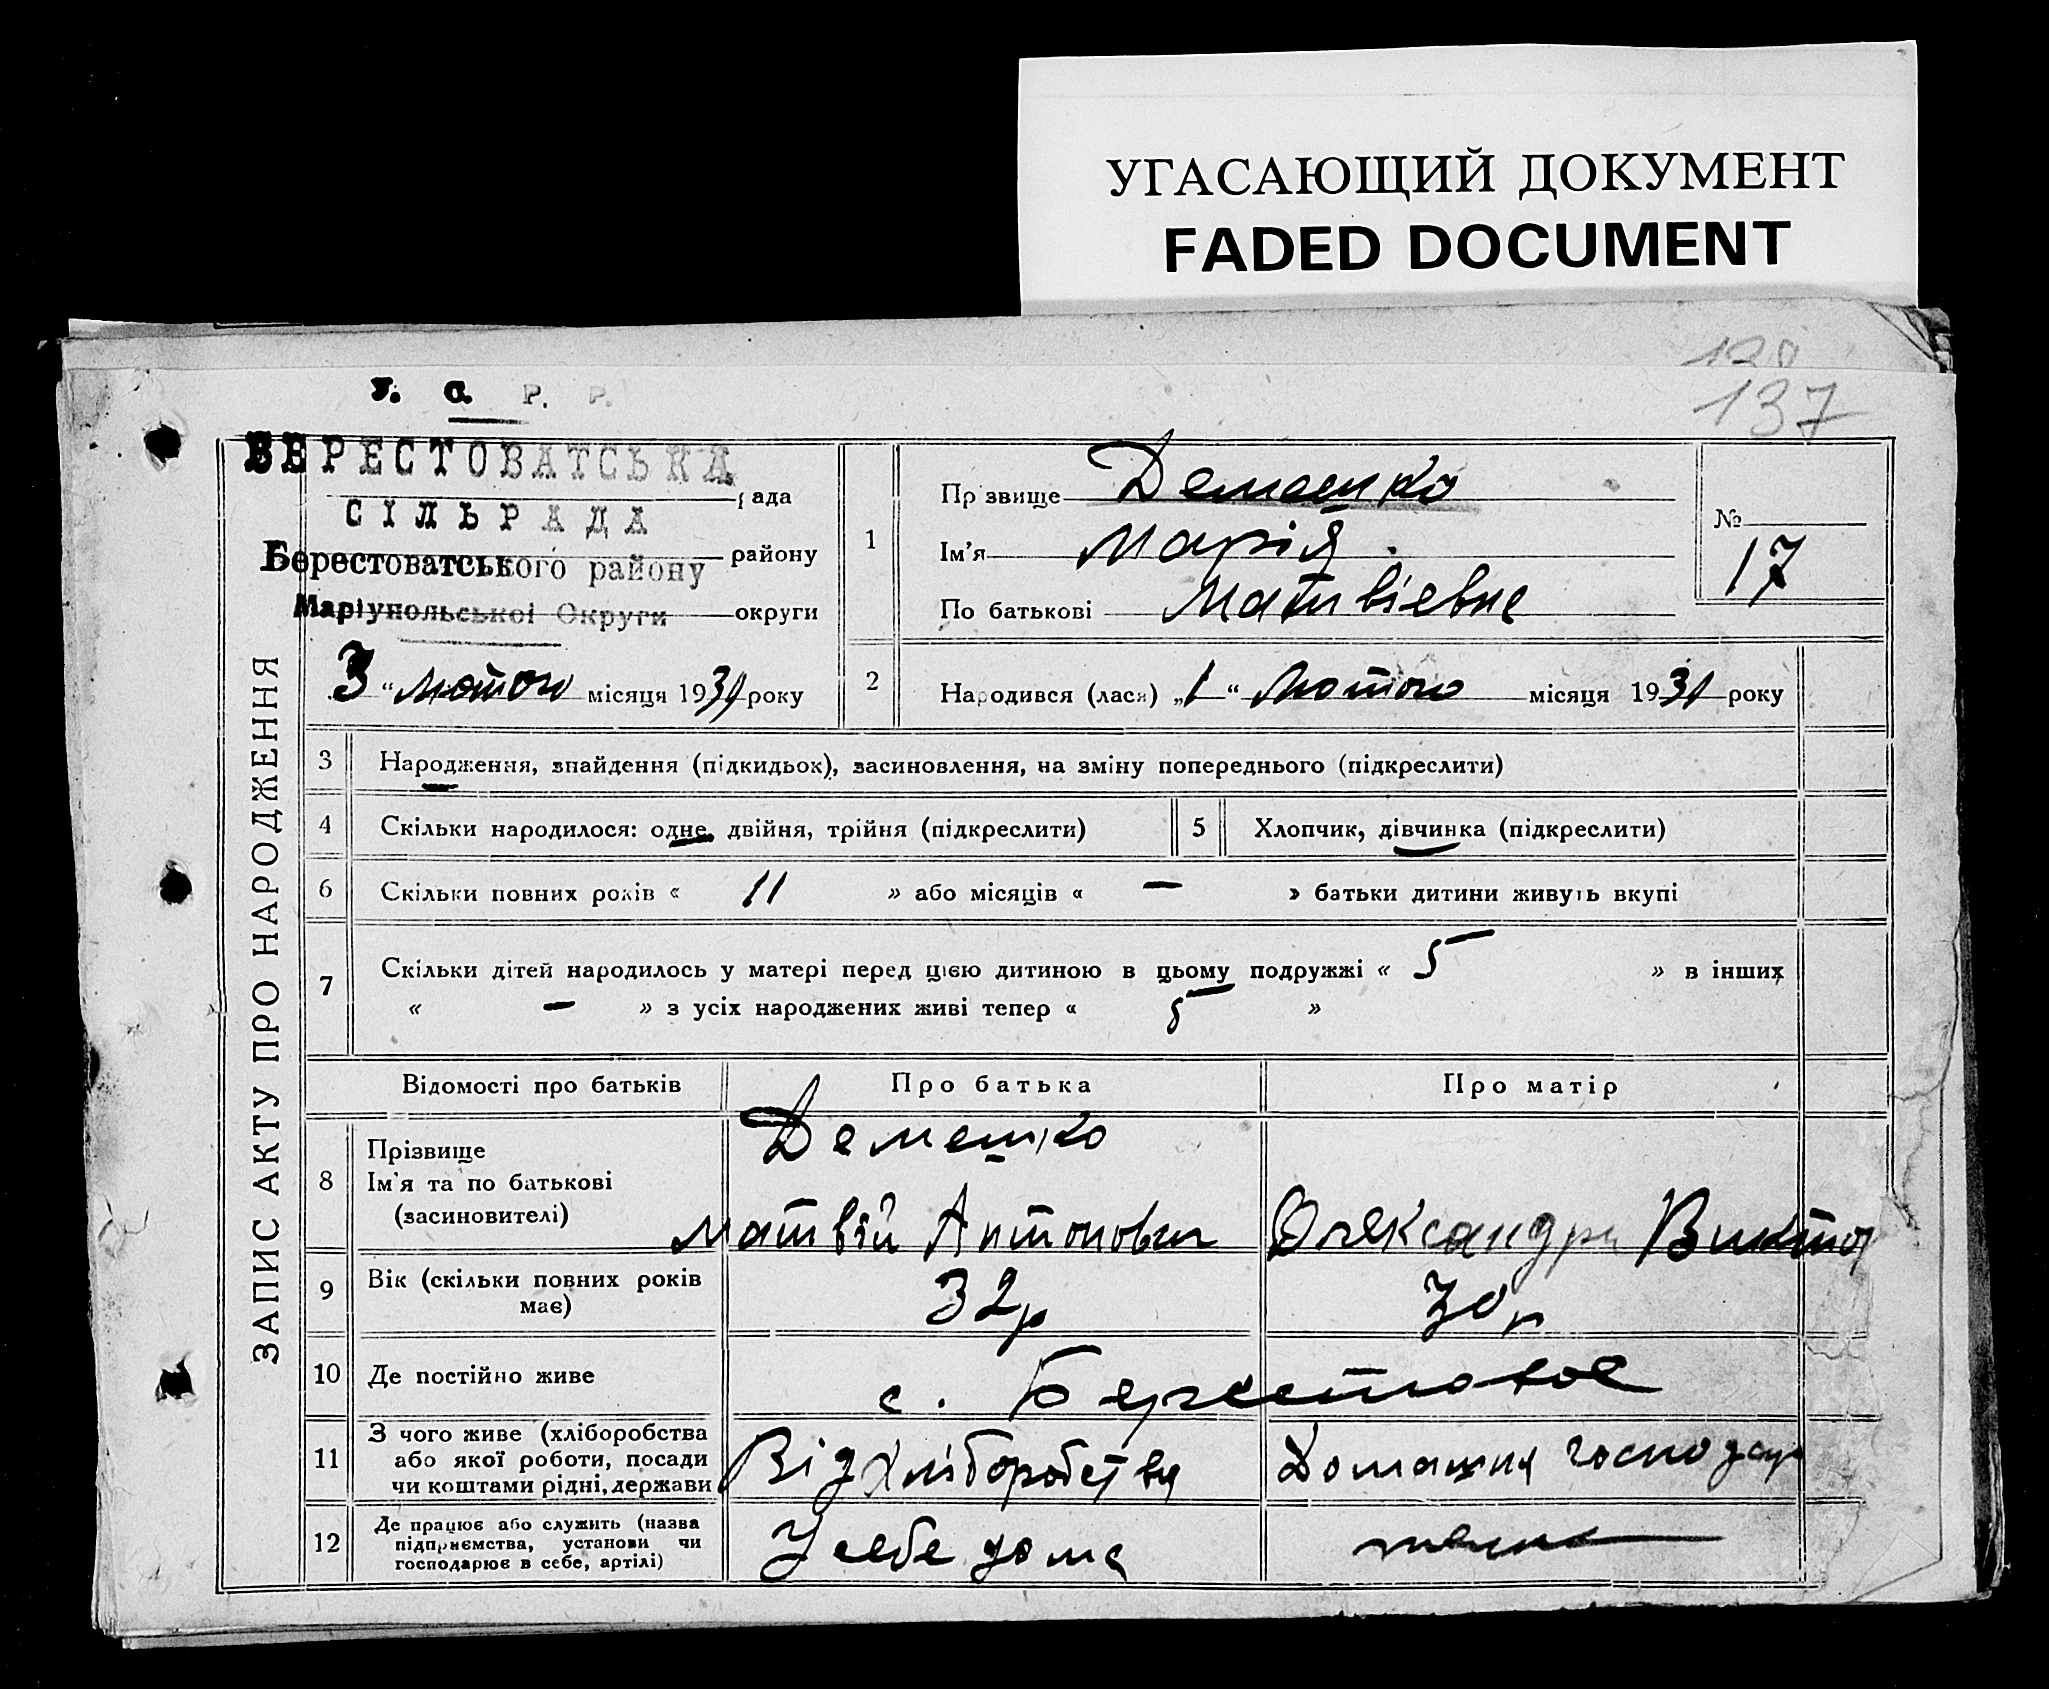 УГАСАЮЩИЙ ДОКУМЕНТ
FADED DOCUMENT
128
137
У. С. Р. Р.
БЕРЕСТОВАТСЬКА
рада
СІЛЬРАДА
Берестоватського району району
Маріупольської Округи округи
3 “ лютого місяця 1931 року
ЗАПИС АКТУ ПРО НАРОДЖЕННЯ
1
Прізвище Демешко
Ім’я Марія
По батькові Матвієвна
№
17
2 Народився (лася) „1“ Лютого місяця 1931 року
3 Народження, знайдення (підкидьох), засиновлення, на зміну попереднього (підкреслити)
4 Скільки народилося: одне, двійня, трійня (підкреслити)
5 Хлопчик, дівчинка (підкреслити)
6 Скільки повних років « 11 » або місяців « — » батьки дитини живуть вкупі
7 Скільки дітей народилось у матері перед цією дитиною в цьому подружжі « 5 » в інших
« — » з усіх народжених живі тепер « 5 »
Відомості про батьків Про батька Про матір
8 Прізвище
Ім’я та по батькові
(засиновителі)
Демешко
Матвій Антонович Олександра Виктор
9 Вік (скільки повних років
має)
32 р 30 р
10 Де постійно живе с. Берестовое
11 З чого живе (хліборобства
або якої роботи, посади
чи коштами рідні, держави
Від хліборобства Домашня господар
12 Де працює або служить (назва
підприємства, установи чи
господарює в себе, артілі)
У себе дома